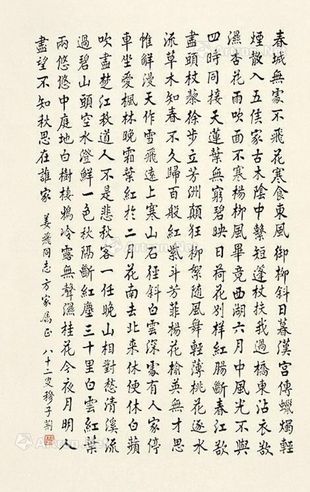 春城無處不飛花寒食東風御柳斜日暮漢宮傳蠟燭輕
煙散入五侯家古木陰中繫短蓬杖扶我過橋東沾衣欲
濕杏花雨吹面不寒楊柳風畢竟西湖六月中風光不與
四時同接天蓮葉無窮碧映日荷花別樣紅腸斷春江欲
盡頭杖藜徐步立芳洲顛狂柳絮隨風舞輕薄桃花逐水
流草木知春不久歸百般紅紫斗芳菲楊花榆莢無才思
惟解漫天作雪飛遠上寒山石徑斜白雲深處有人家停
車坐愛楓林晚霜葉紅於二月花南去北来休便休白蘋
吹盡楚江秋道人不是悲秋客一任晚山相對愁清溪流
過碧山頭空水澄鮮一色秋隔斷紅塵三十里白雲紅葉
兩悠悠中庭地白樹棲鴉冷露無聲濕桂花今夜月明人
盡望不知秋思在誰家 姜飛同志方家為正 八十二叟穆子荊